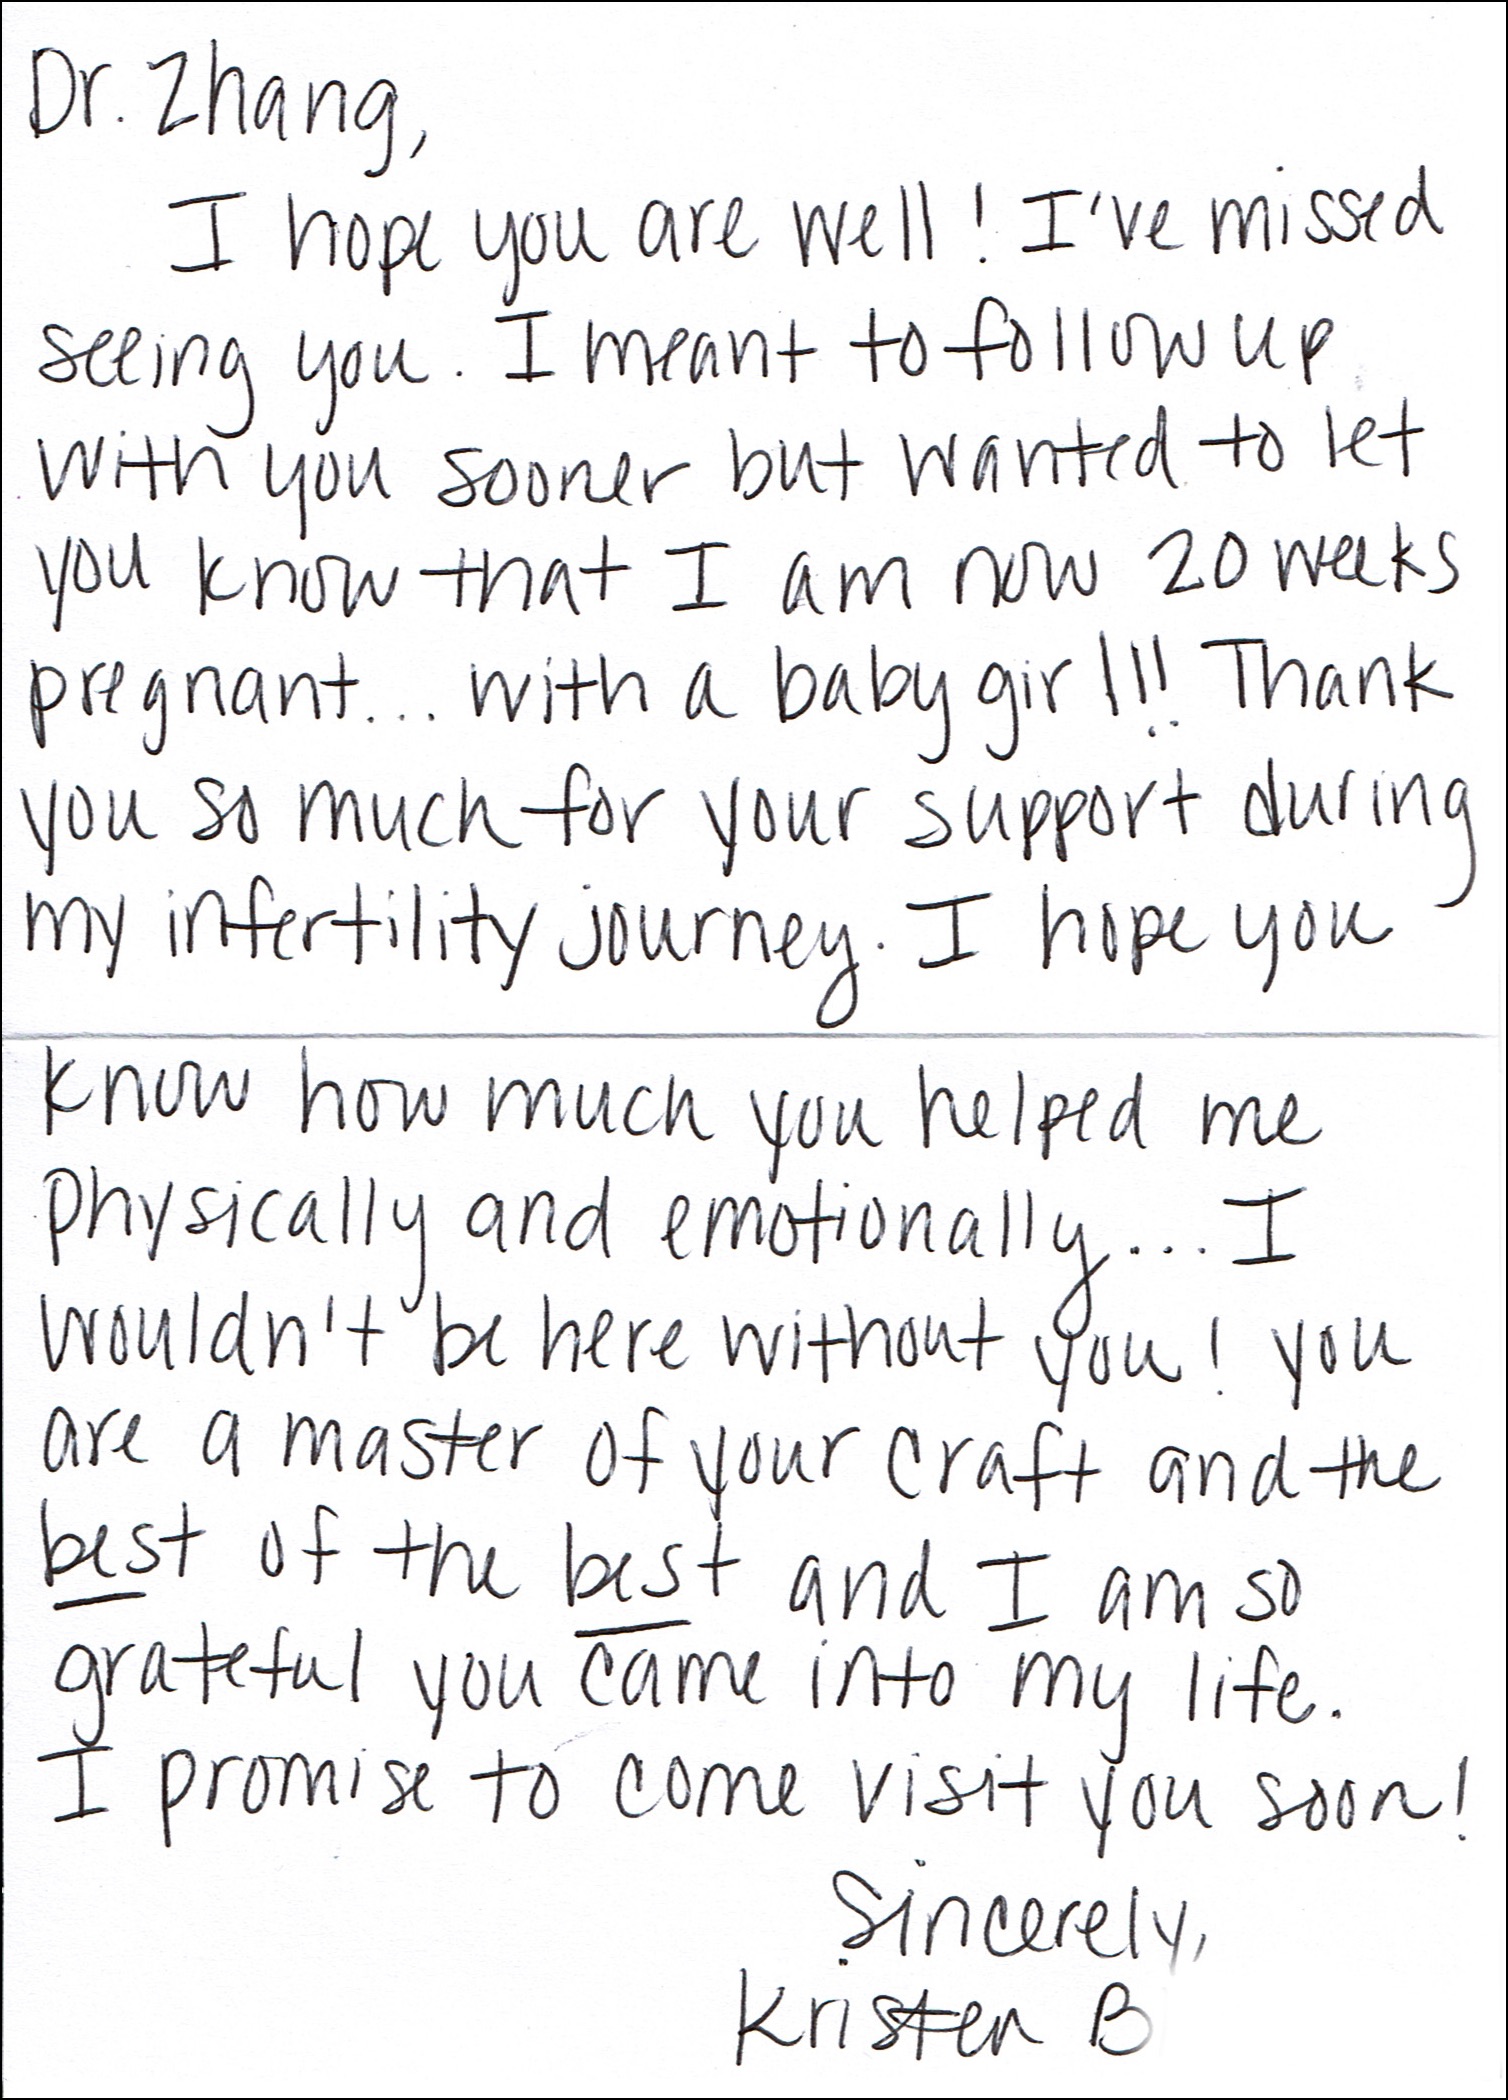 Dr. Zhang,
I hope you are well! I've missed
seeing you. I meant to follow up
with you sooner but wanted to let
you know that I am now 20 weeks
pregnant... with a baby girl!!! Thank
you so much for your support during
my infertility journey. I hope you
know how much you helped me
physically and emotionally... I
wouldn't be here without you! you
are a master of your craft and the
best of the best and I am so
grateful you came into my life.
I promise to come visit you soon!
Sincerely,
Kristen B